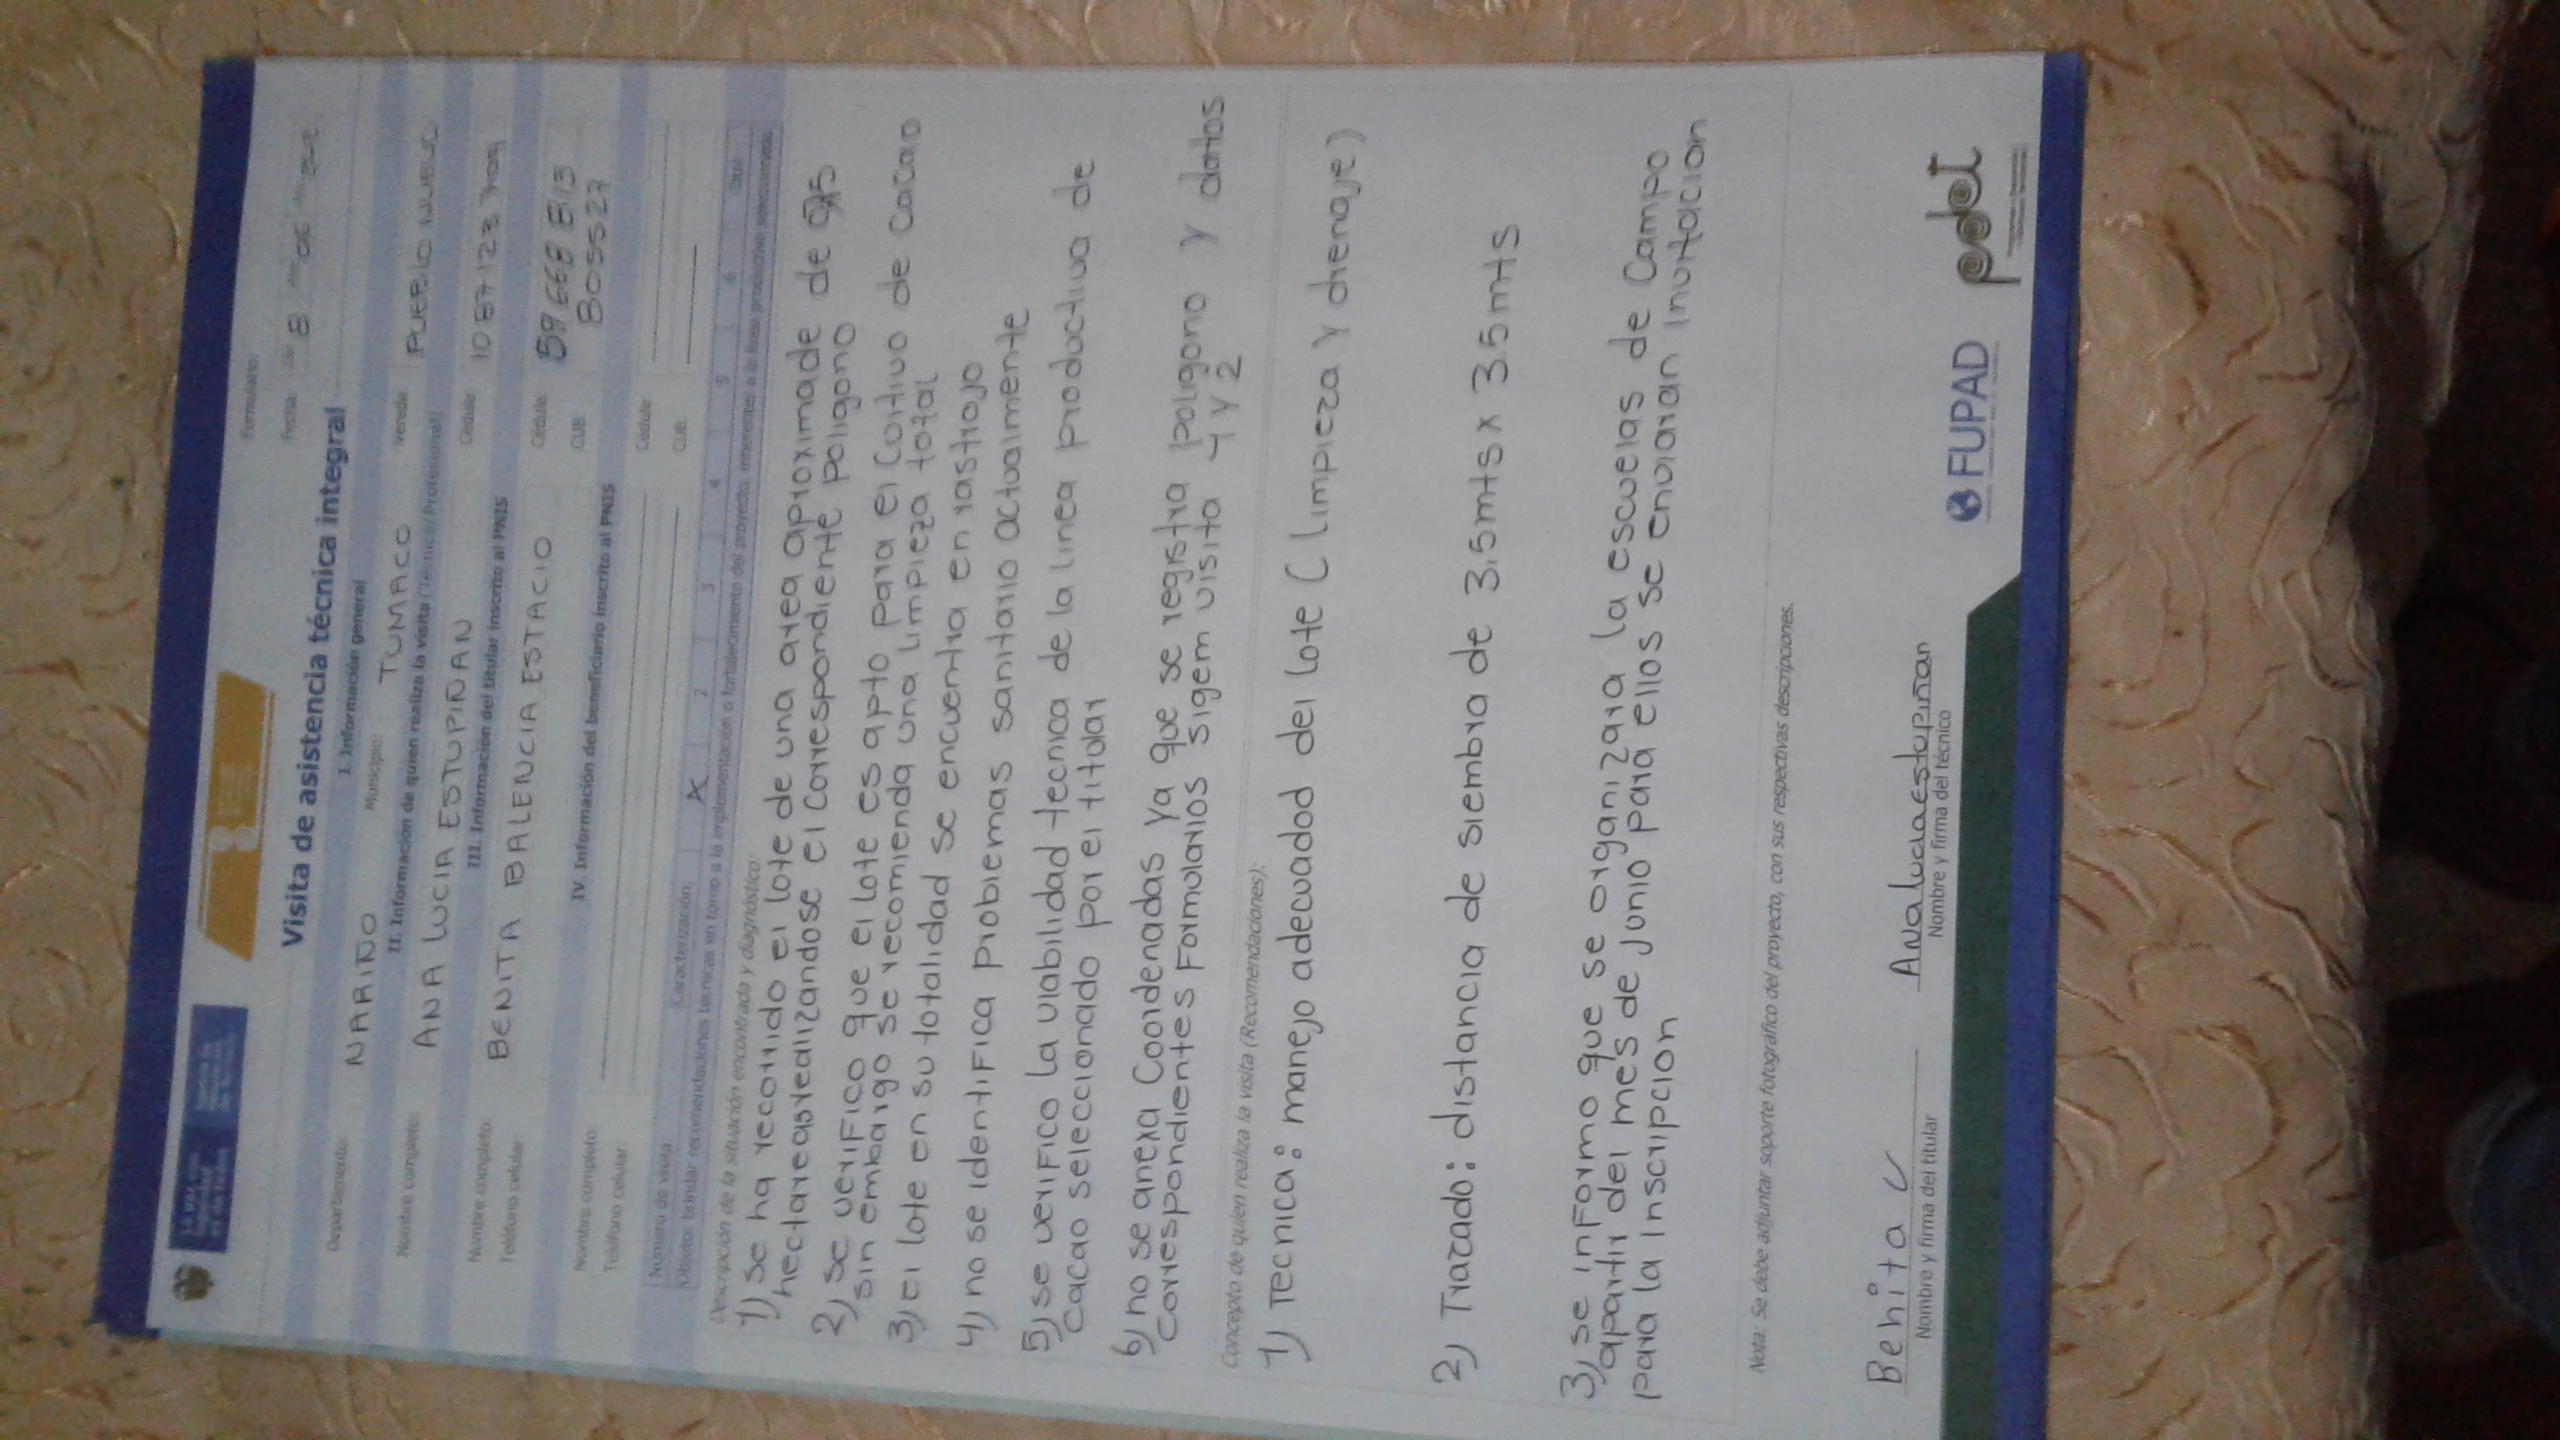 Formulario:
Visita de asistencia técnica integral
Fecha: 8 06
I. Información general
Departamento: NARIÑO Municipio: TUMACO Vereda PUEBLO NUEVO
II. Información de quien realiza la visita (Técnico/Profesional)
Nombre completo: ANA LUCIA ESTUPIÑAN Cédula: 1087123709
III. Información del titular inscrito al PNIS
Nombre completo: BENITA BALENCIA ESTACIO Cédula: 59668513
Teléfono celular: CUB: 805527
IV. Información del beneficiario inscrito al PNIS
Nombre completo: Cédula:
Teléfono celular: CUB:
Número de visita Caracterización: X 1 2 3 4 5 6 Otra:
Objeto: brindar recomendaciones técnicas en torno a la implementación o fortalecimiento del proyecto, inherentes a la línea productiva seleccionada.
Descripción de la situación encontrada y diagnóstico:
1) se ha recorrido el lote de una area aproximade de
hectareas realizandose el correspondiente poligono
2) se verifico que el lote es apto para el cultivo de cacao
sin embargo se recomienda una limpieza total
3) el lote en su totalidad se encuentra en rastrojo
4) no se identifica problemas sanitario actualmente
5) se verifico la viabilidad tecnica de la linea productiva de
cacao seleccionado por el titular
6) no se anexa coordenadas ya que se registra poligono y datos
correspondientes Formularios sigem visita 1 y 2
Concepto de quien realiza la visita (Recomendaciones):
1) Tecnica: manejo adecuadod del lote ( limpieza y drenaje)
2) Trazado: distancia de siembra de 3.5 mts x 3.5 mts
3) se informo que se organizara la escuelas de campo
apartir del mes de junio para ellos se enviaran invitacion
para la inscripcion
Nota: Se debe adjuntar soporte fotográfico del proyecto, con sus respectivas descripciones.
Benita V Ana lucia estupiñan
Nombre y firma del titular Nombre y firma del técnico
FUPAD pdet